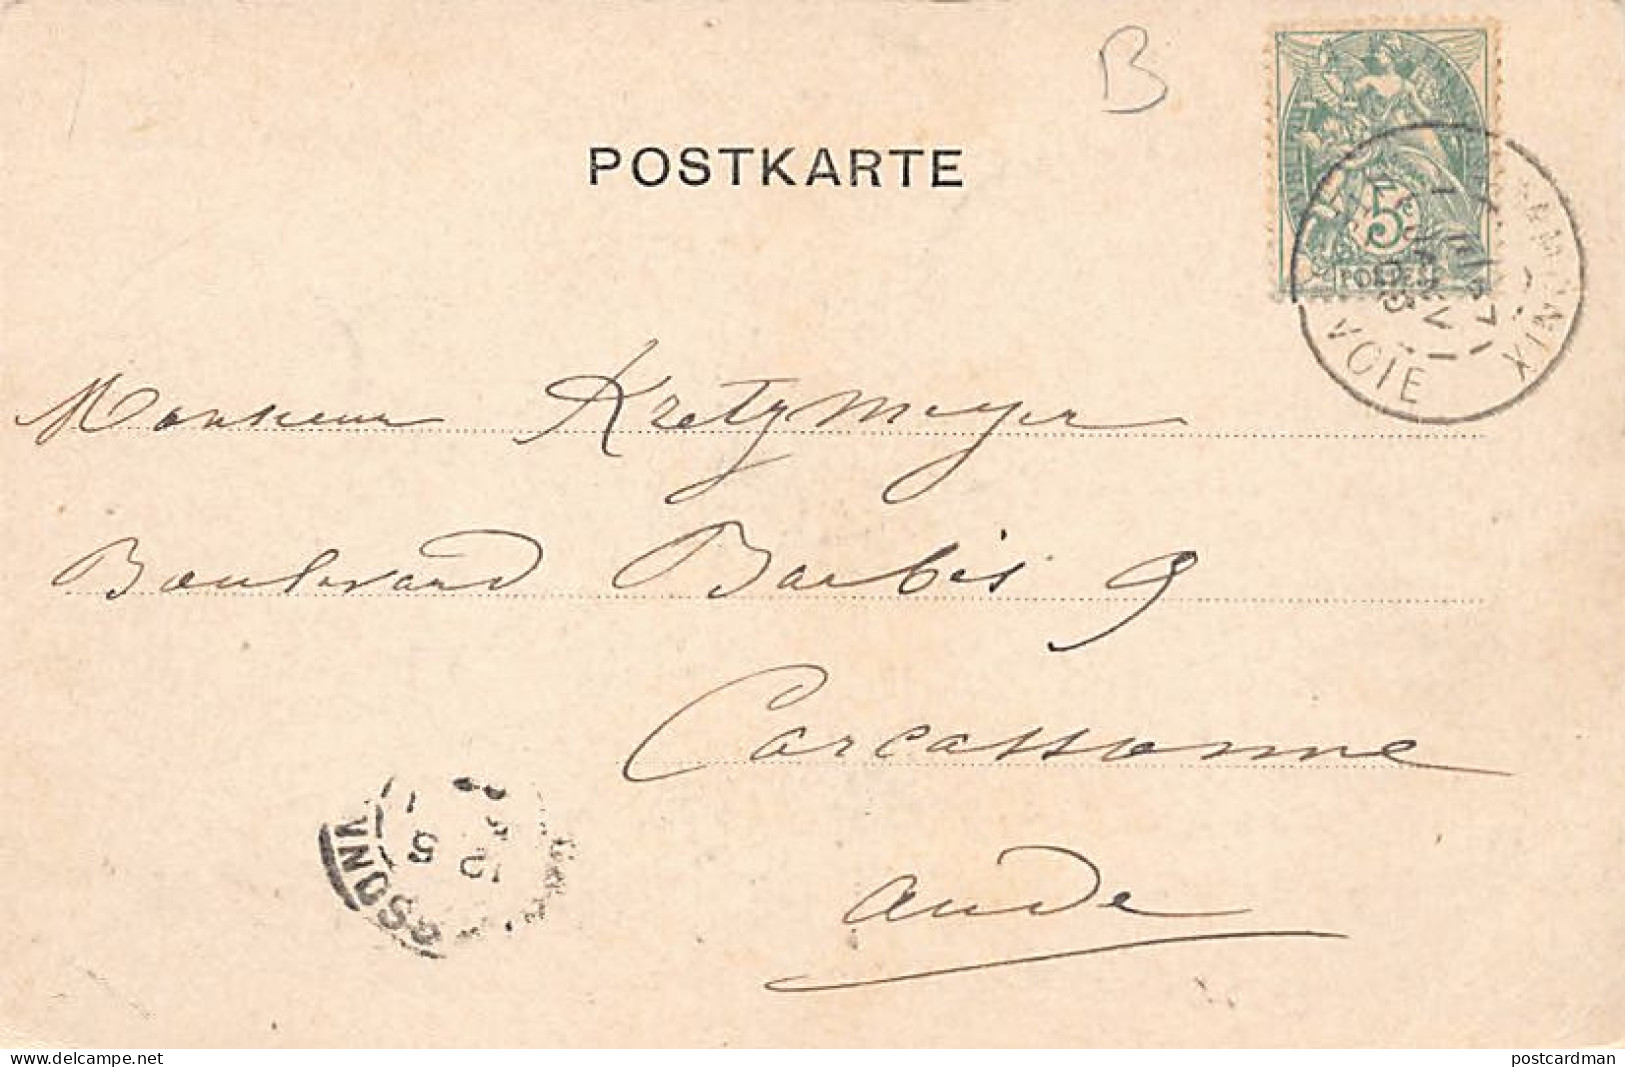 B
POSTKARTE
5
POSTES
VOIE
Monsieur Kretzmeyer
Boulevard Barbès 9
Carcassonne
Aude
website: delcampe.net
postcardman